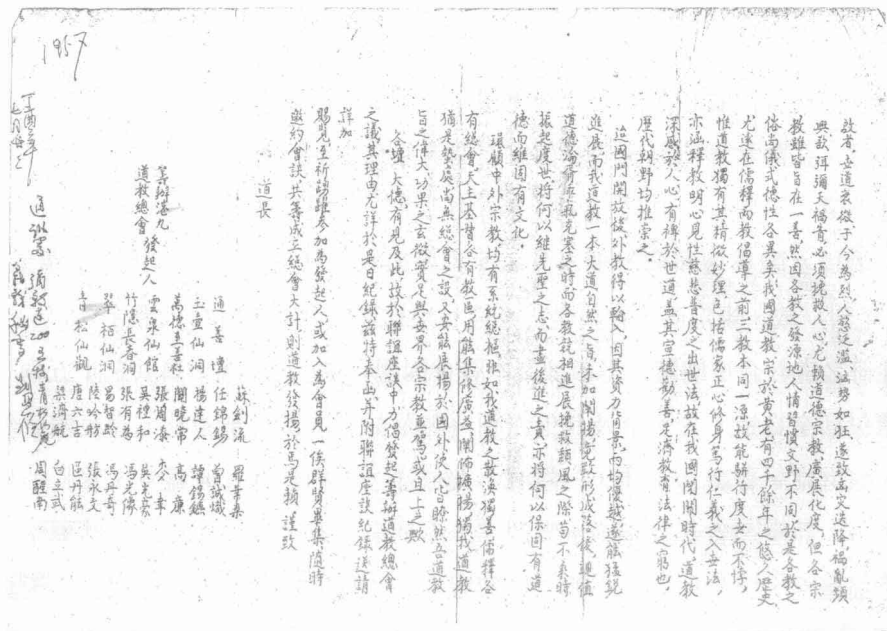 啟者。世道衰微于今為烈，人慾泛濫治勢如狂，遂致禍災迭降禍亂頻
興，欲弭彌天禍眚必須挽救人心尤賴道德宗教廣展化度，但各宗
教雖皆旨在一善，然因各教之發源地人情習慣文野不同，於是各教之
俗尚儀式德性各異矣，我國道教宗於黃老有四千餘年之悠久歷史
尤遠在儒釋兩教倡導之前三教本同一源故能駢行度世而不悖，
惟道教獨有其精微妙理包括儒家正心修身篤行仁義之入世法，
亦涵釋教明心見性慈悲普度之出世法故在我國閉關時代，道教
深感於人心有裨於世道，蓋其宣德勸善，足濟教育法律之窮也，
歷代朝野均推崇之。
迨國門開放後外教得以輸入，因其資力背景兩均優越遂能猛銳
進展而我道教一本大道自然之旨未加闡揚竟致形成落後，現值
道德淪胥 充塞之時而各教競相進展挽救頹風之際苟不乘時
振起度世將何以維先聖之志，而盡後進之責，亦將何以保固有道
德而維固有文化。
環顧中外宗教均有系統總樞非如我道教之散渙獨善儒釋各
有總會，天主基督各有教區用能集修廣益闡佈擴揚獨我道教
猶是 處尚無總會之設，又安能展揚於國外使人皆瞭然吾道教
旨之偉大功果之玄微實足與世界各宗教並駕或且上之歟
各壇 大德有見及此故於聯誼座談中力倡發起籌辦道教總會
之議其理由尤詳於是日紀錄茲特奉函并附聯誼座談紀錄送請
詳加
賜覽至祈踴躍參加為發起人或加入為會員一俟群賢畢集隨時
邀約會談共籌成立總會大計，則道教發揚於焉是賴 謹致
道長
籌辦港九
道教總會 發起人
通善壇 任錦錫 曾誠熾
蘇劍流 羅
玉壺仙洞 楊達人 譚錫
萬德至善社 關曉常 高康
雲泉仙館 張蘭滌 李
吳禮和 吳
竹隱長春洞 張有為 馮
翠栢仙洞 易智齡 馮
陸吟舫 張永文
青松仙觀 唐六吉 區丹
梁濟航 白立武
周醒南
1957
丁酉年
七月